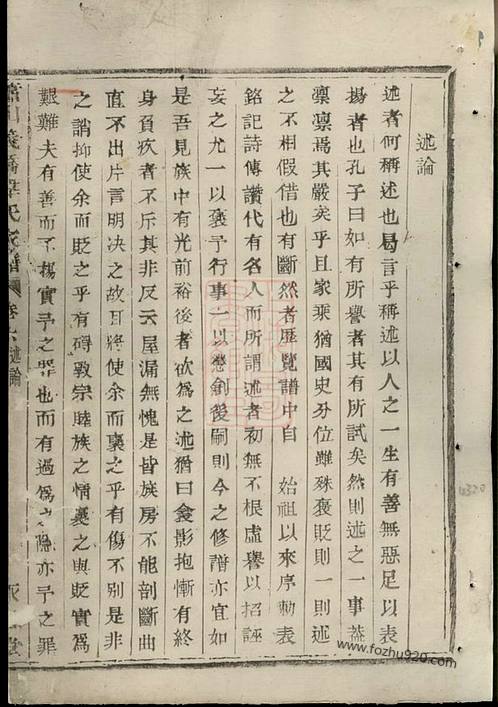 述論
述者何稱述也曷言乎稱述以人之一生有善無惡足以表
揚者也孔子曰如有所譽者其有所試矣然則述之一事蓋
凛凛焉其嚴矣乎且家乘猶國史分位雖殊褒貶則一則述
之不相假借也有斷然者歷覽譜中自 始祖以來序勅表
銘記詩傳讚代有名人而所謂述者初無不根虛譽以招誣
妄之尤一以褒予行事一以懲創後嗣則今之修譜亦宜如
是吾見族中有光前裕後者欲為之述猶曰衾影抱慚有終
身負疚者不斥其非反云屋漏無愧是皆族房不能剖斷曲
直不出片言明决之故耳將使余而襃之乎有傷不别是非
之誚抑使余而貶之乎有碍敦宗睦族之情襃之與貶實為
艱難夫有善而不揚實予之罪也而有過為之隱亦予之罪
氏家譜 卷 述論 堂
www.fozhu920.com